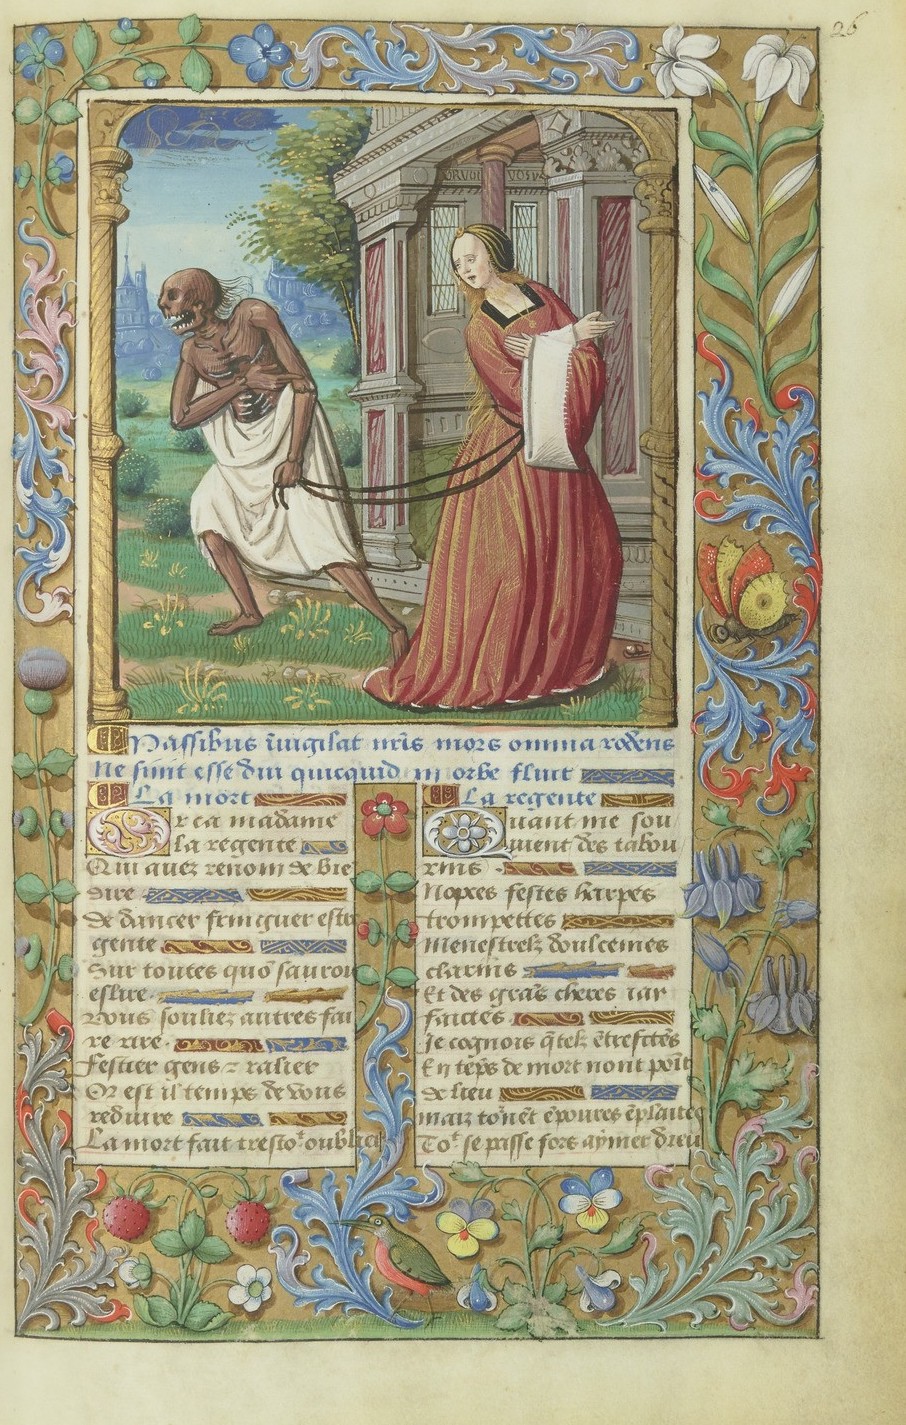 26
Passibus īuigilat nr̄is mors omnia rodens
Ne sint esse diu quicquid in orbe fluit
La mort
Or ca madame
la regente
Qui auez renom de bie
dire
de dancer fringuer estr
gente
Sur toutes quo' sauroit
eslire
vous souliez autres fai
re rire
Festier gens z ralier
Or est il temps de vous
reduire
La mort fait tresto' oublier
La regente
Quant me sou
uient d̄s tabou
rins
Nopces festes harpes
trompettes
Menestrelz doulcemes
clarins
Et des grās cheres iar
faictes
Je cognois q̄ telz ētrefctēs
En tēps de mort nont poīt
de lieu
maiz tōnēt
To' se passe fors aymer dieu